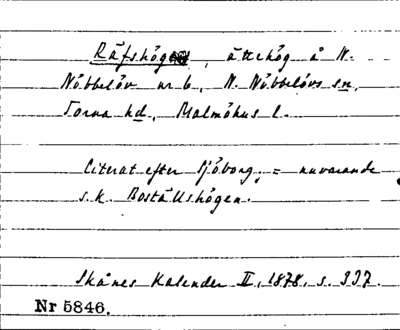 Räfshög, ättehög å N.
Nöbbelöv nr 6, N. Nöbbelövs sn,
Torna hd, Malmöhus l.
Citerat efter Sjöborg; = nuvarande
s.k. Boställshögen.
Skånes Kalender II, 1878, s. 337.
Nr 5846.